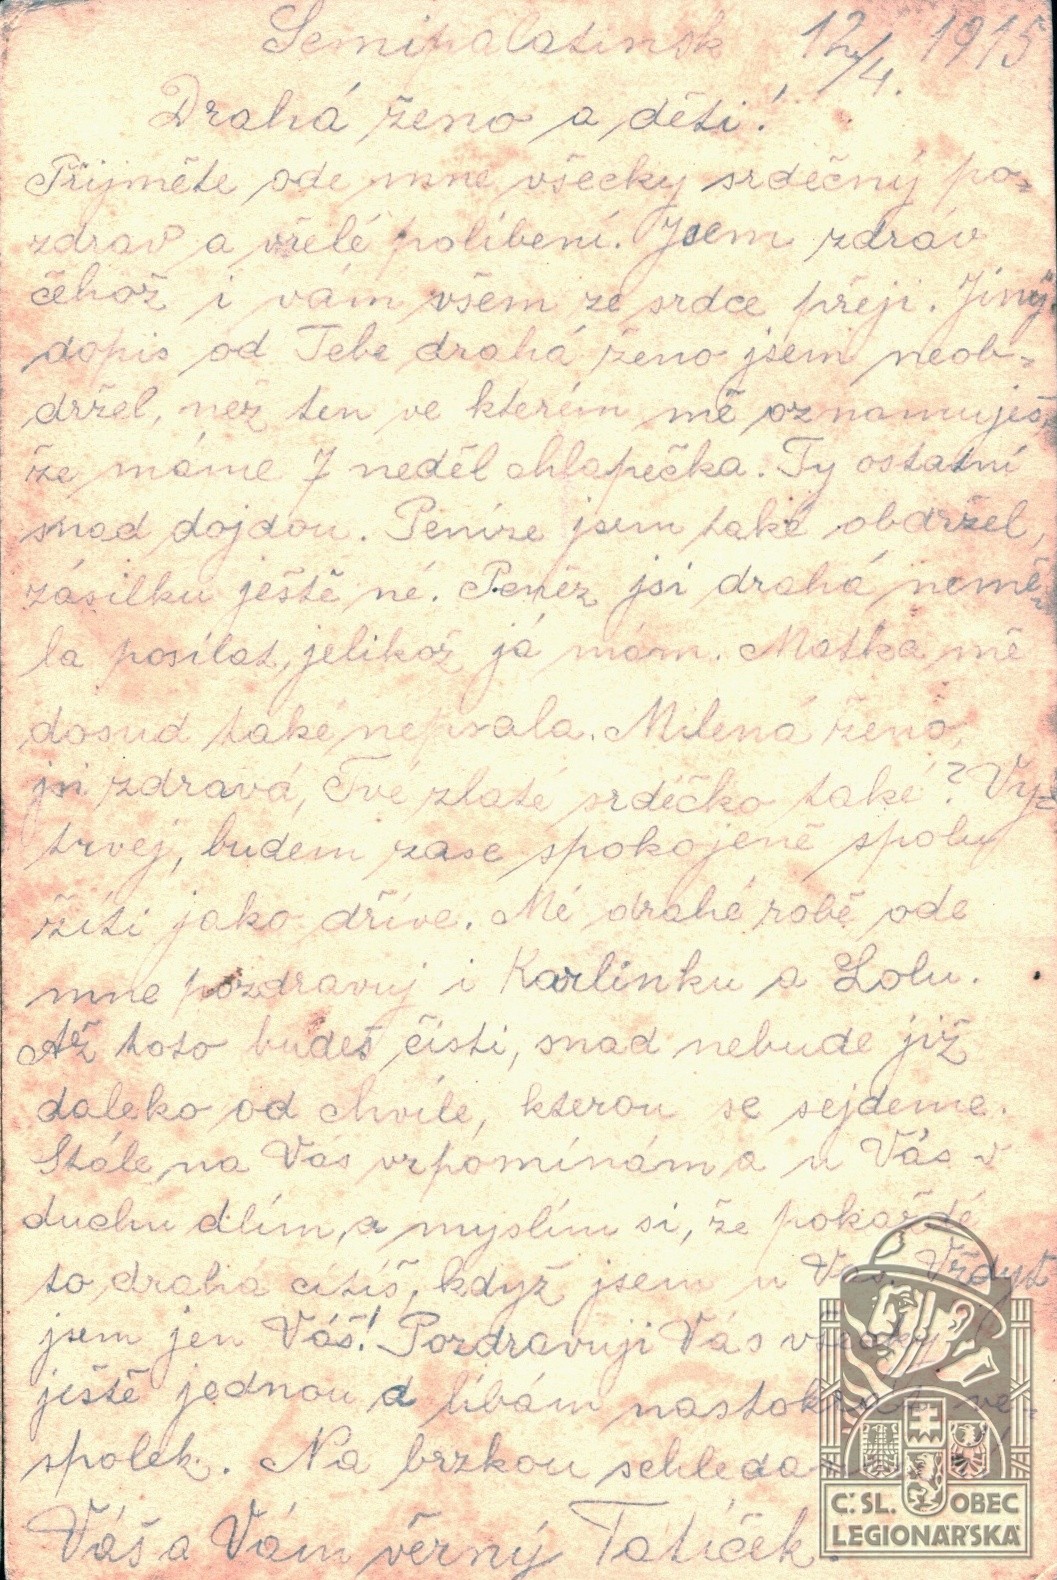 Semipalatinsk 12/4. 1915
Drahá ženo a děti!
Přijměte ode mne všecky srdečný po-
zdrav a vřelé políbení. Jsem zdráv
čehož i vám všem ze srdce přeji. Jiný
dopis od Tebe drahá ženo jsem neob-
držel, než ten ve kterém mě oznamuješ
že máme 7 neděl chlapečka. Ty ostatní
snad dojdou. Peníze jsem také obdržel,
zásilku ještě né. Peněz jsi drahá nemě-
la posílat, jelikož já mám. Matka mě
dosud také nepsala. Milená ženo,
jsi zdravá, Tvé zlaté srdéčko také? Vy-
trvej, budem zase spokojeně spolu
žíti jako dříve. Mé drahé robě ode
mne pozdravuj i Karlinku a Lolu.
Až toto budeš čísti, snad nebude již
daleko od chvíle, kterou se sejdeme.
Stále na Vás vzpomínám a u Vás v
duchu dlím, a myslím si, že pokaždé
to drahá cítíš, když jsem u Vás. Vždyť
jsem jen Váš! Pozdravuji Vás všecky
ještě jednou a líbám nastokrát ve-
spolek. Na brzkou schleda
Váš a Vám věrný Tatíček.
Č.SL. OBEC
LEGIONÁŘSKÁ